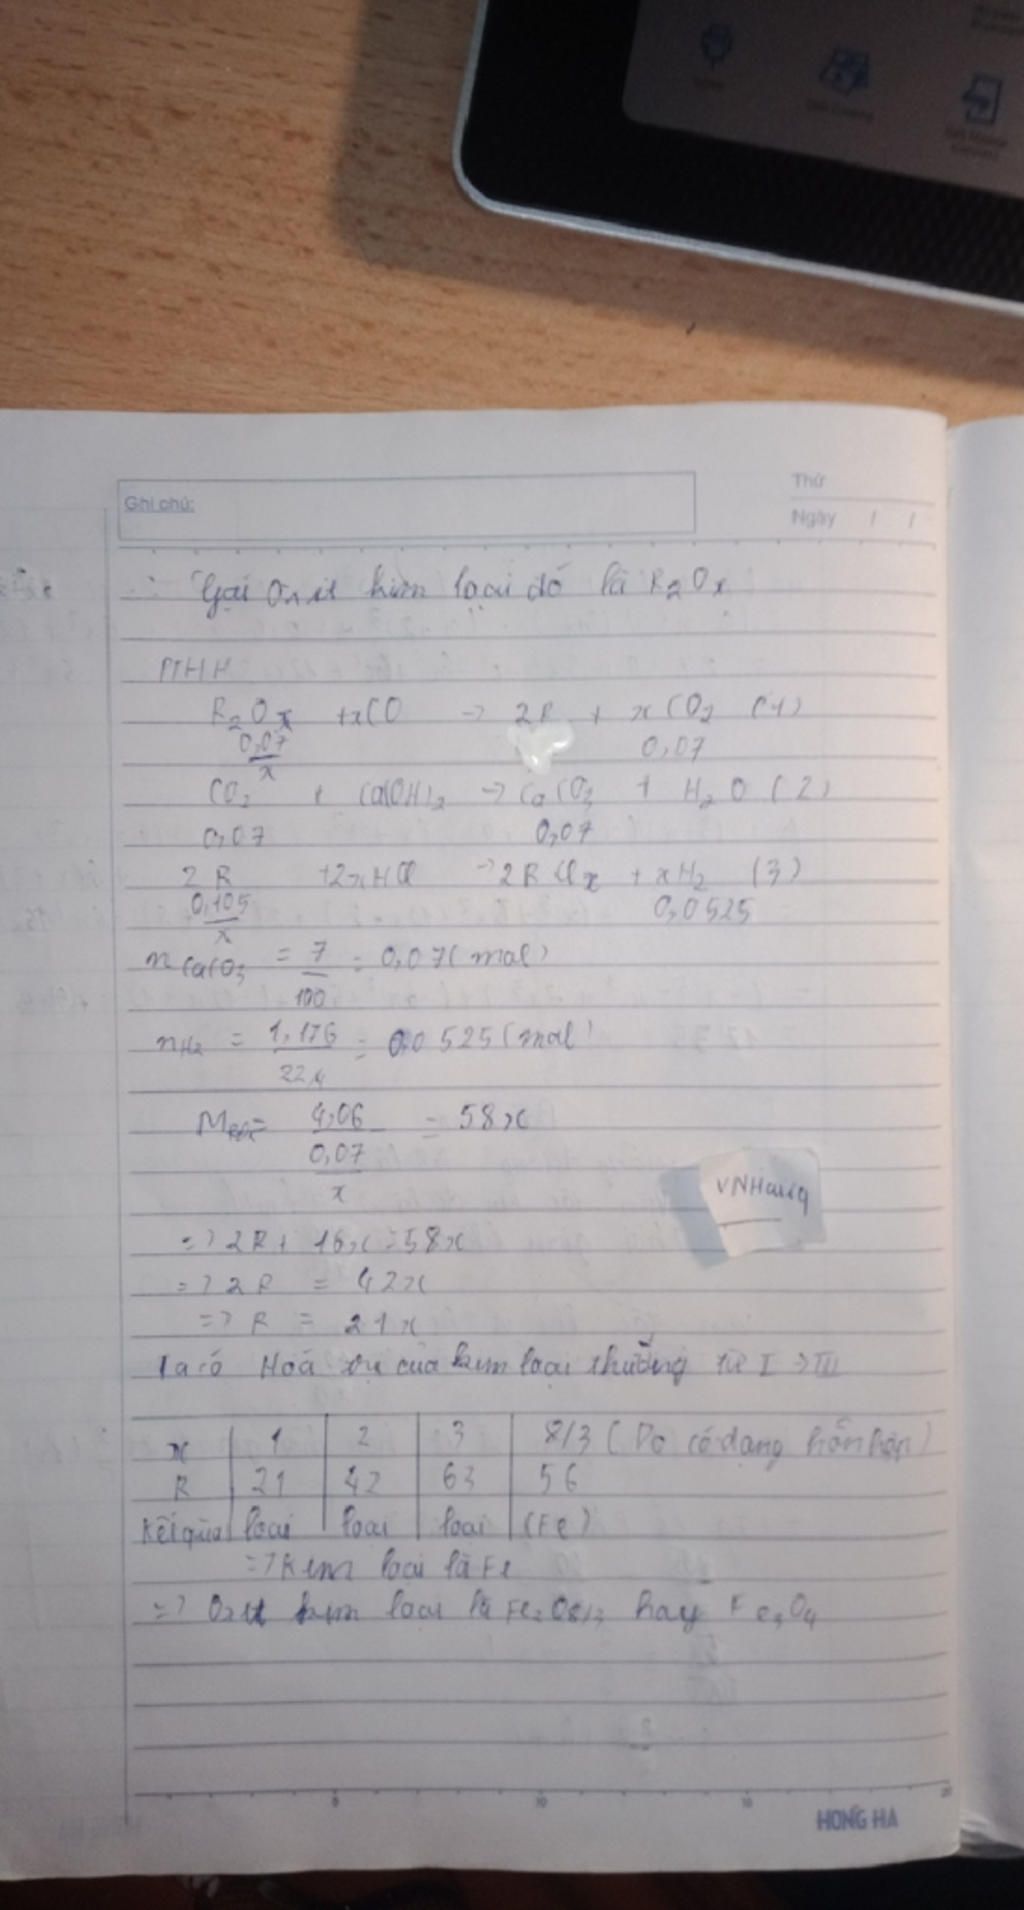 Ghi chú:
Thứ
Ngày / /
Gọi Oxit kim loại đó là R₂Oₓ
PTHH
R₂Oₓ + xCO → 2R + xCO₂ (1)
0,07/x 0,07
CO₂ + Ca(OH)₂ → CaCO₃ + H₂O (2)
0,07 0,07
2R + 2xHCl → 2RClₓ + xH₂ (3)
0,105/x 0,0525
n CaCO₃ = 7/100 = 0,07 (mol)
nH₂ = 1,176/22,4 = 0,0525 (mol)
M = 4,06/(0,07/x) = 58x
VNHang
=> 2R + 16x = 58x
=> 2R = 42x
=> R = 21x
Ta có Hoá trị của kim loại thường từ I → III
x | 1 | 2 | 3 | 8/3 (Do có dạng hỗn hợp)
R | 21 | 42 | 63 | 56
Kết quả | loại | loại | loại | (Fe)
=> Kim loại là Fe
=> Oxit kim loại là Fe₂O8/3 hay Fe₃O₄
5 10 15 20
HONG HA